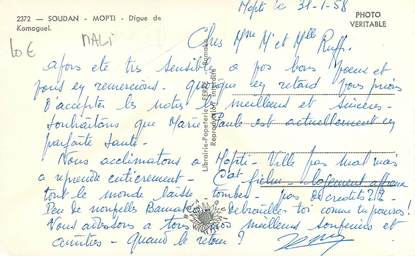 2372 — SOUDAN - MOPTI - Digue de
Komoguel.
PHOTO
VERITABLE
10€
MALI
Mopti le 31-1-58
Chers Mme Mr et Mlle Ruff.
avons été très sensibles à vos bons voeux et
vous en remercions. Quoique en retard vous prions
d'accepter les notres les meilleurs et sincères.
Souhaitons que Marie Paule est actuellement en
parfaite Santé.
Nous acclimatons à Mopti - Ville pas mal mais
à reprendre entièrement.
tout le monde laisse tomber - pas de crédits
Peu de nouvelles Bamako débrouilles toi comme tu pourras!
Vous adressons à tous nos meilleurs souvenirs et
amitiés - Quand le retour?
Librairie-Papeterie
Reproduction interdite